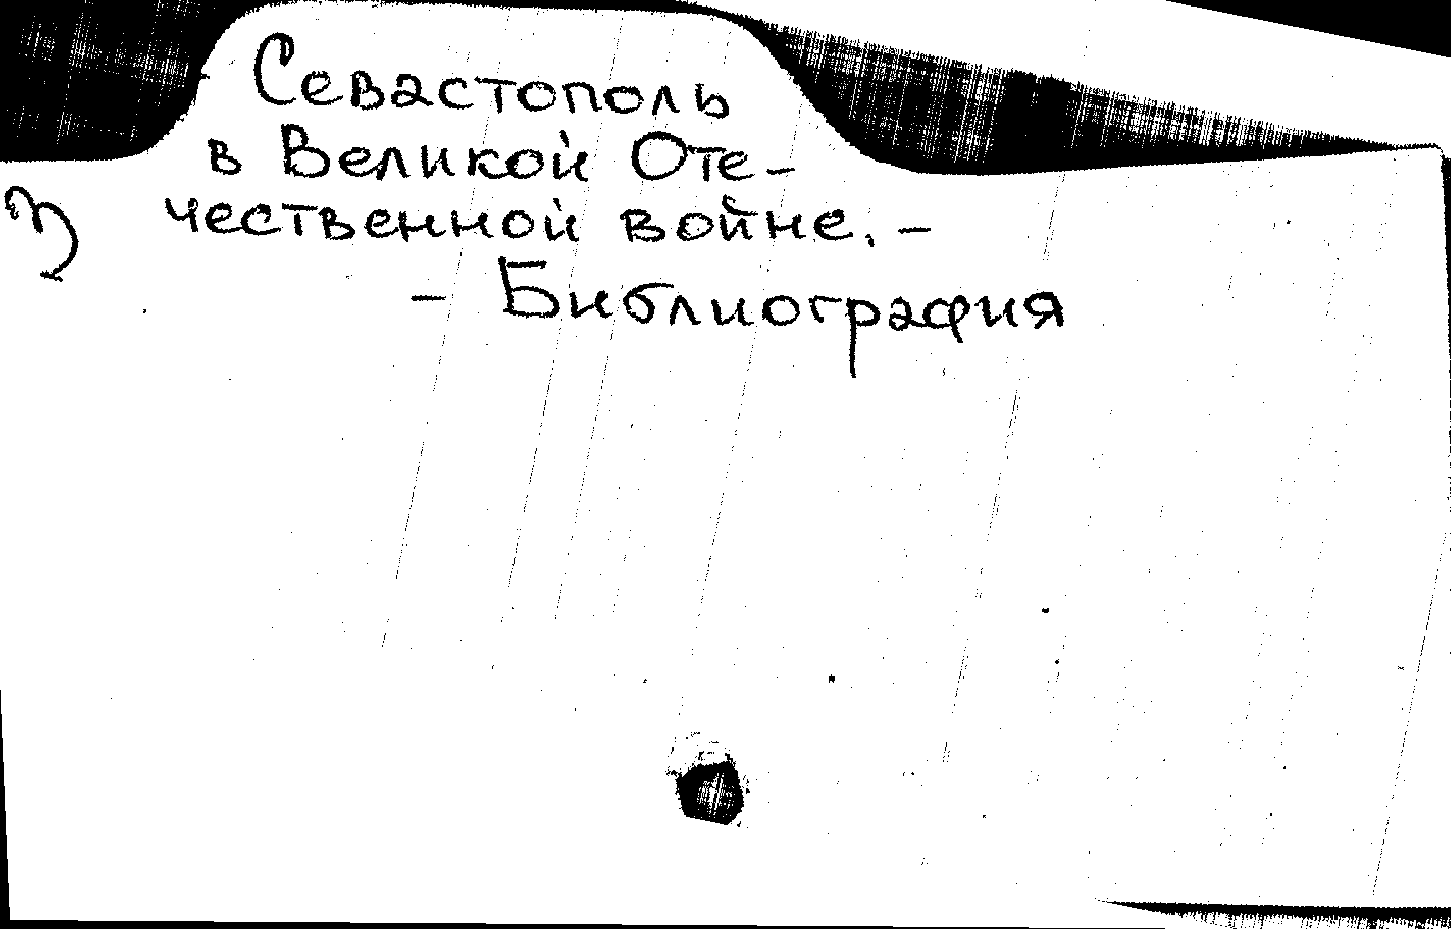 Севастополь
в Великой Оте-
чественной войне. -
- Библиография